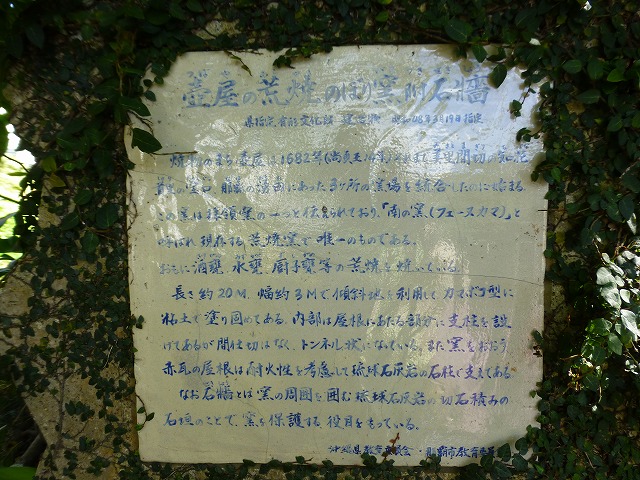 壺屋の荒焼のぼり窯附石牆
県指定有形文化財 昭和48年3月19日指定
焼物のまち壺屋は1682年(尚貞王14年)
窯場を統合したのに始まる。
この窯は拝領窯の一つと伝えられており、「南の窯(フェーヌカマ)」と
呼ばれ現存する荒焼窯で唯一のものである。
おもに酒甕、水甕、厨子甕等の荒焼を焼いている。
長さ約20M、幅約3Mで傾斜地を利用してカマボコ型に
粘土で塗り固めてある。内部は屋根にあたる部分に支柱を設
けてあるが間仕切はなく、トンネル状になっている。また窯をおおう
赤瓦の屋根は耐火性を考慮して琉球石灰岩の石柱で支えてある
なお石牆とは窯の周囲を囲む琉球石灰岩の切石積みの
石垣のことで、窯を保護する役目をもっている。
沖縄県教育委員会・那覇市教育委員会